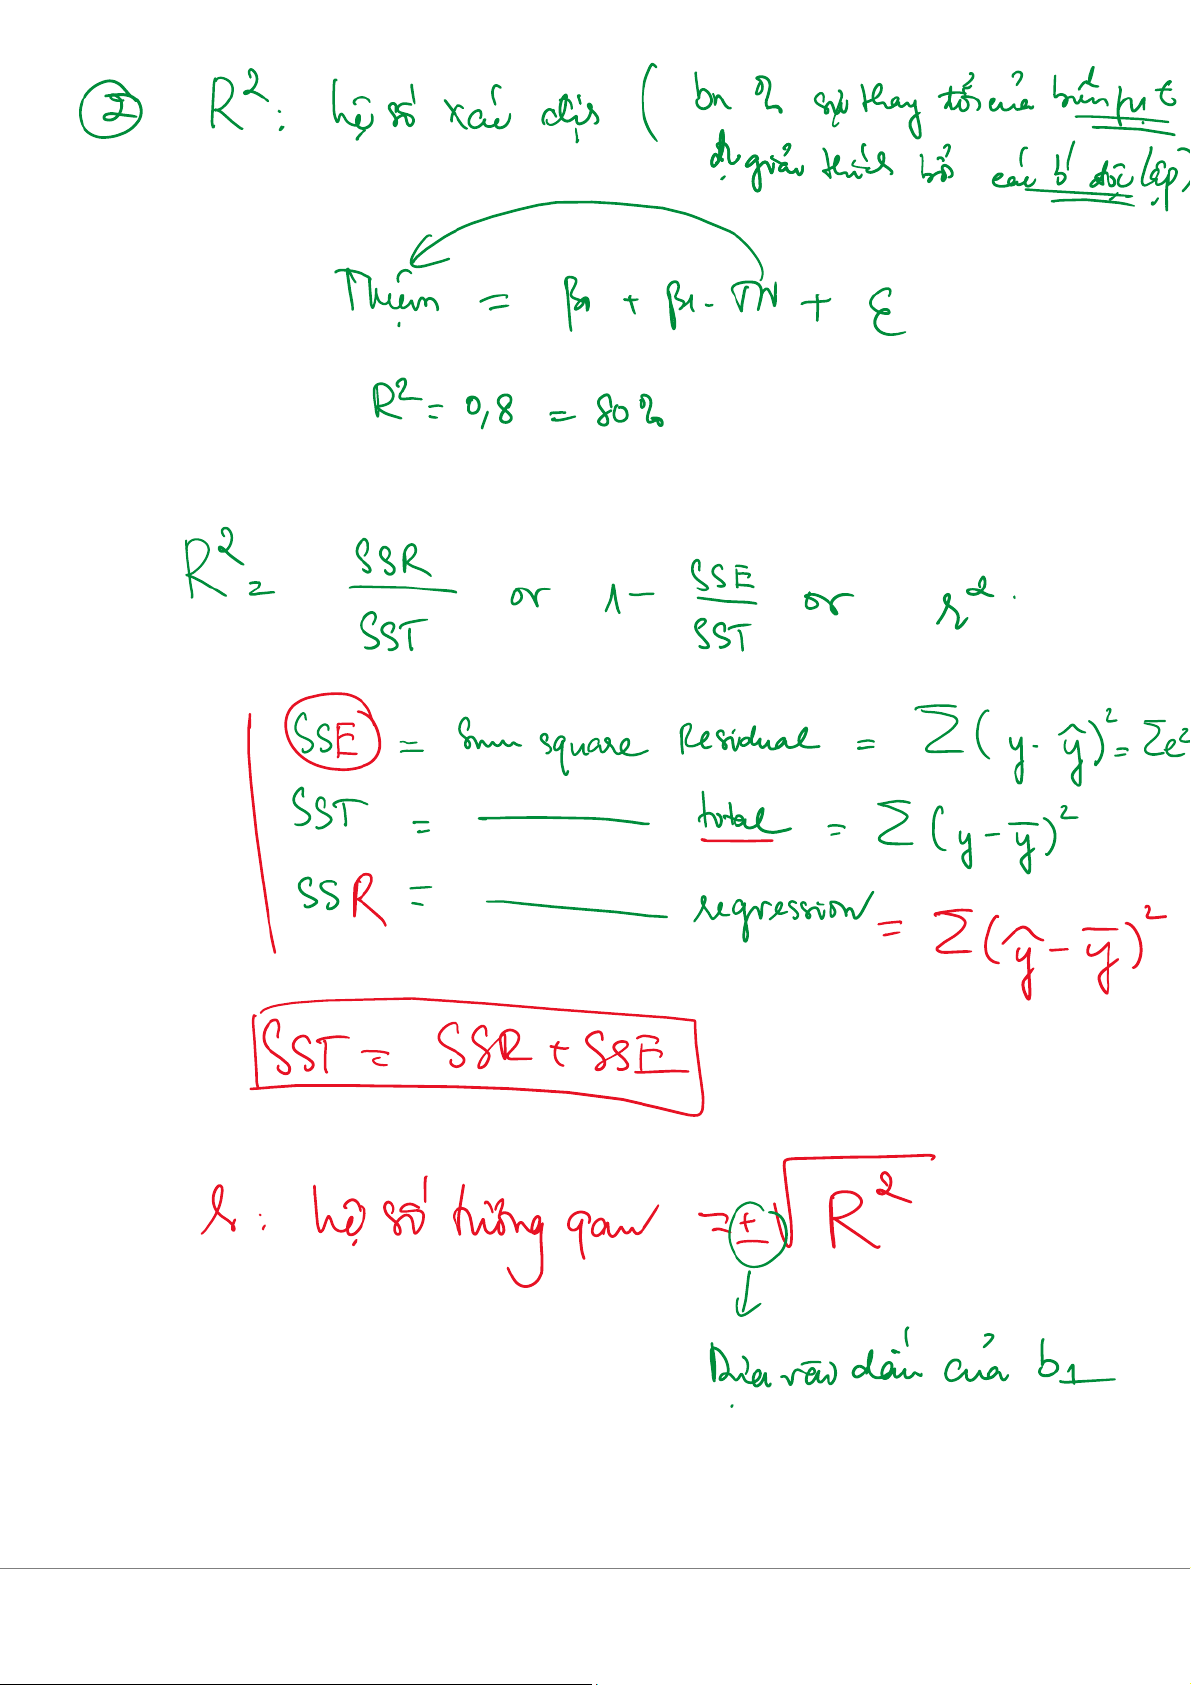 ② R²: hệ số xác địh ( bn % sự thay đổi của biến pụ t
đc giải thích bởi các b' độc lập)
Tkiệm = β0 + β1 . TN + ε
R² = 0,8 = 80%
R² = SSR/SST or 1 - SSE/SST or r².
SSE = Sum square Residual = Σ(y - ŷ)² = Σe²
SST = ——— total = Σ(y - ȳ)²
SSR = ——— regression = Σ(ŷ - ȳ)²
SST = SSR + SSE
r : hệ số tương quan = ±√R²
Dựa vào dấu của b1